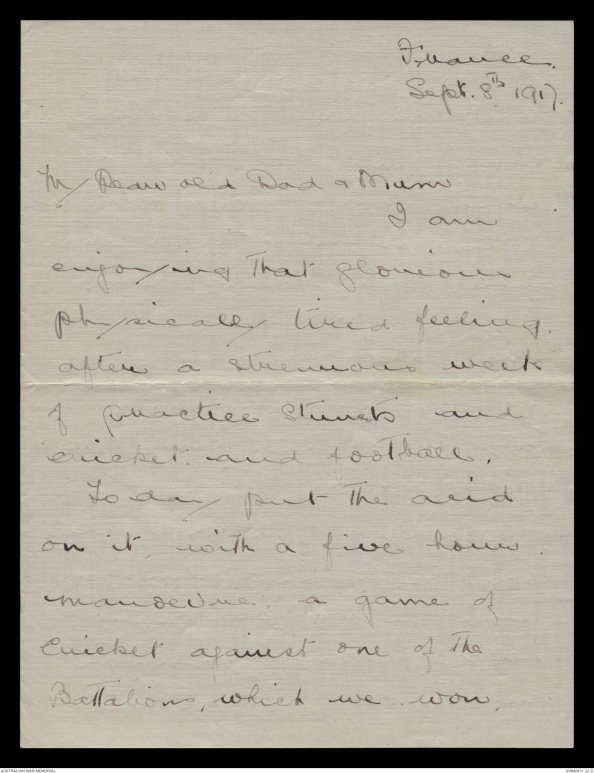 France.
Sept. 8th 1917.
My Dear old Dad & Mum
I am
enjoying that glorious
physically tired feeling.
after a strenuous week
of practice stunts and
cricket and football.
Today put the acid
on it, with a five hour
manoevre; a game of
Cricket against one of the
Battalions, which we won,
AUSTRALIAN WAR MEMORIAL